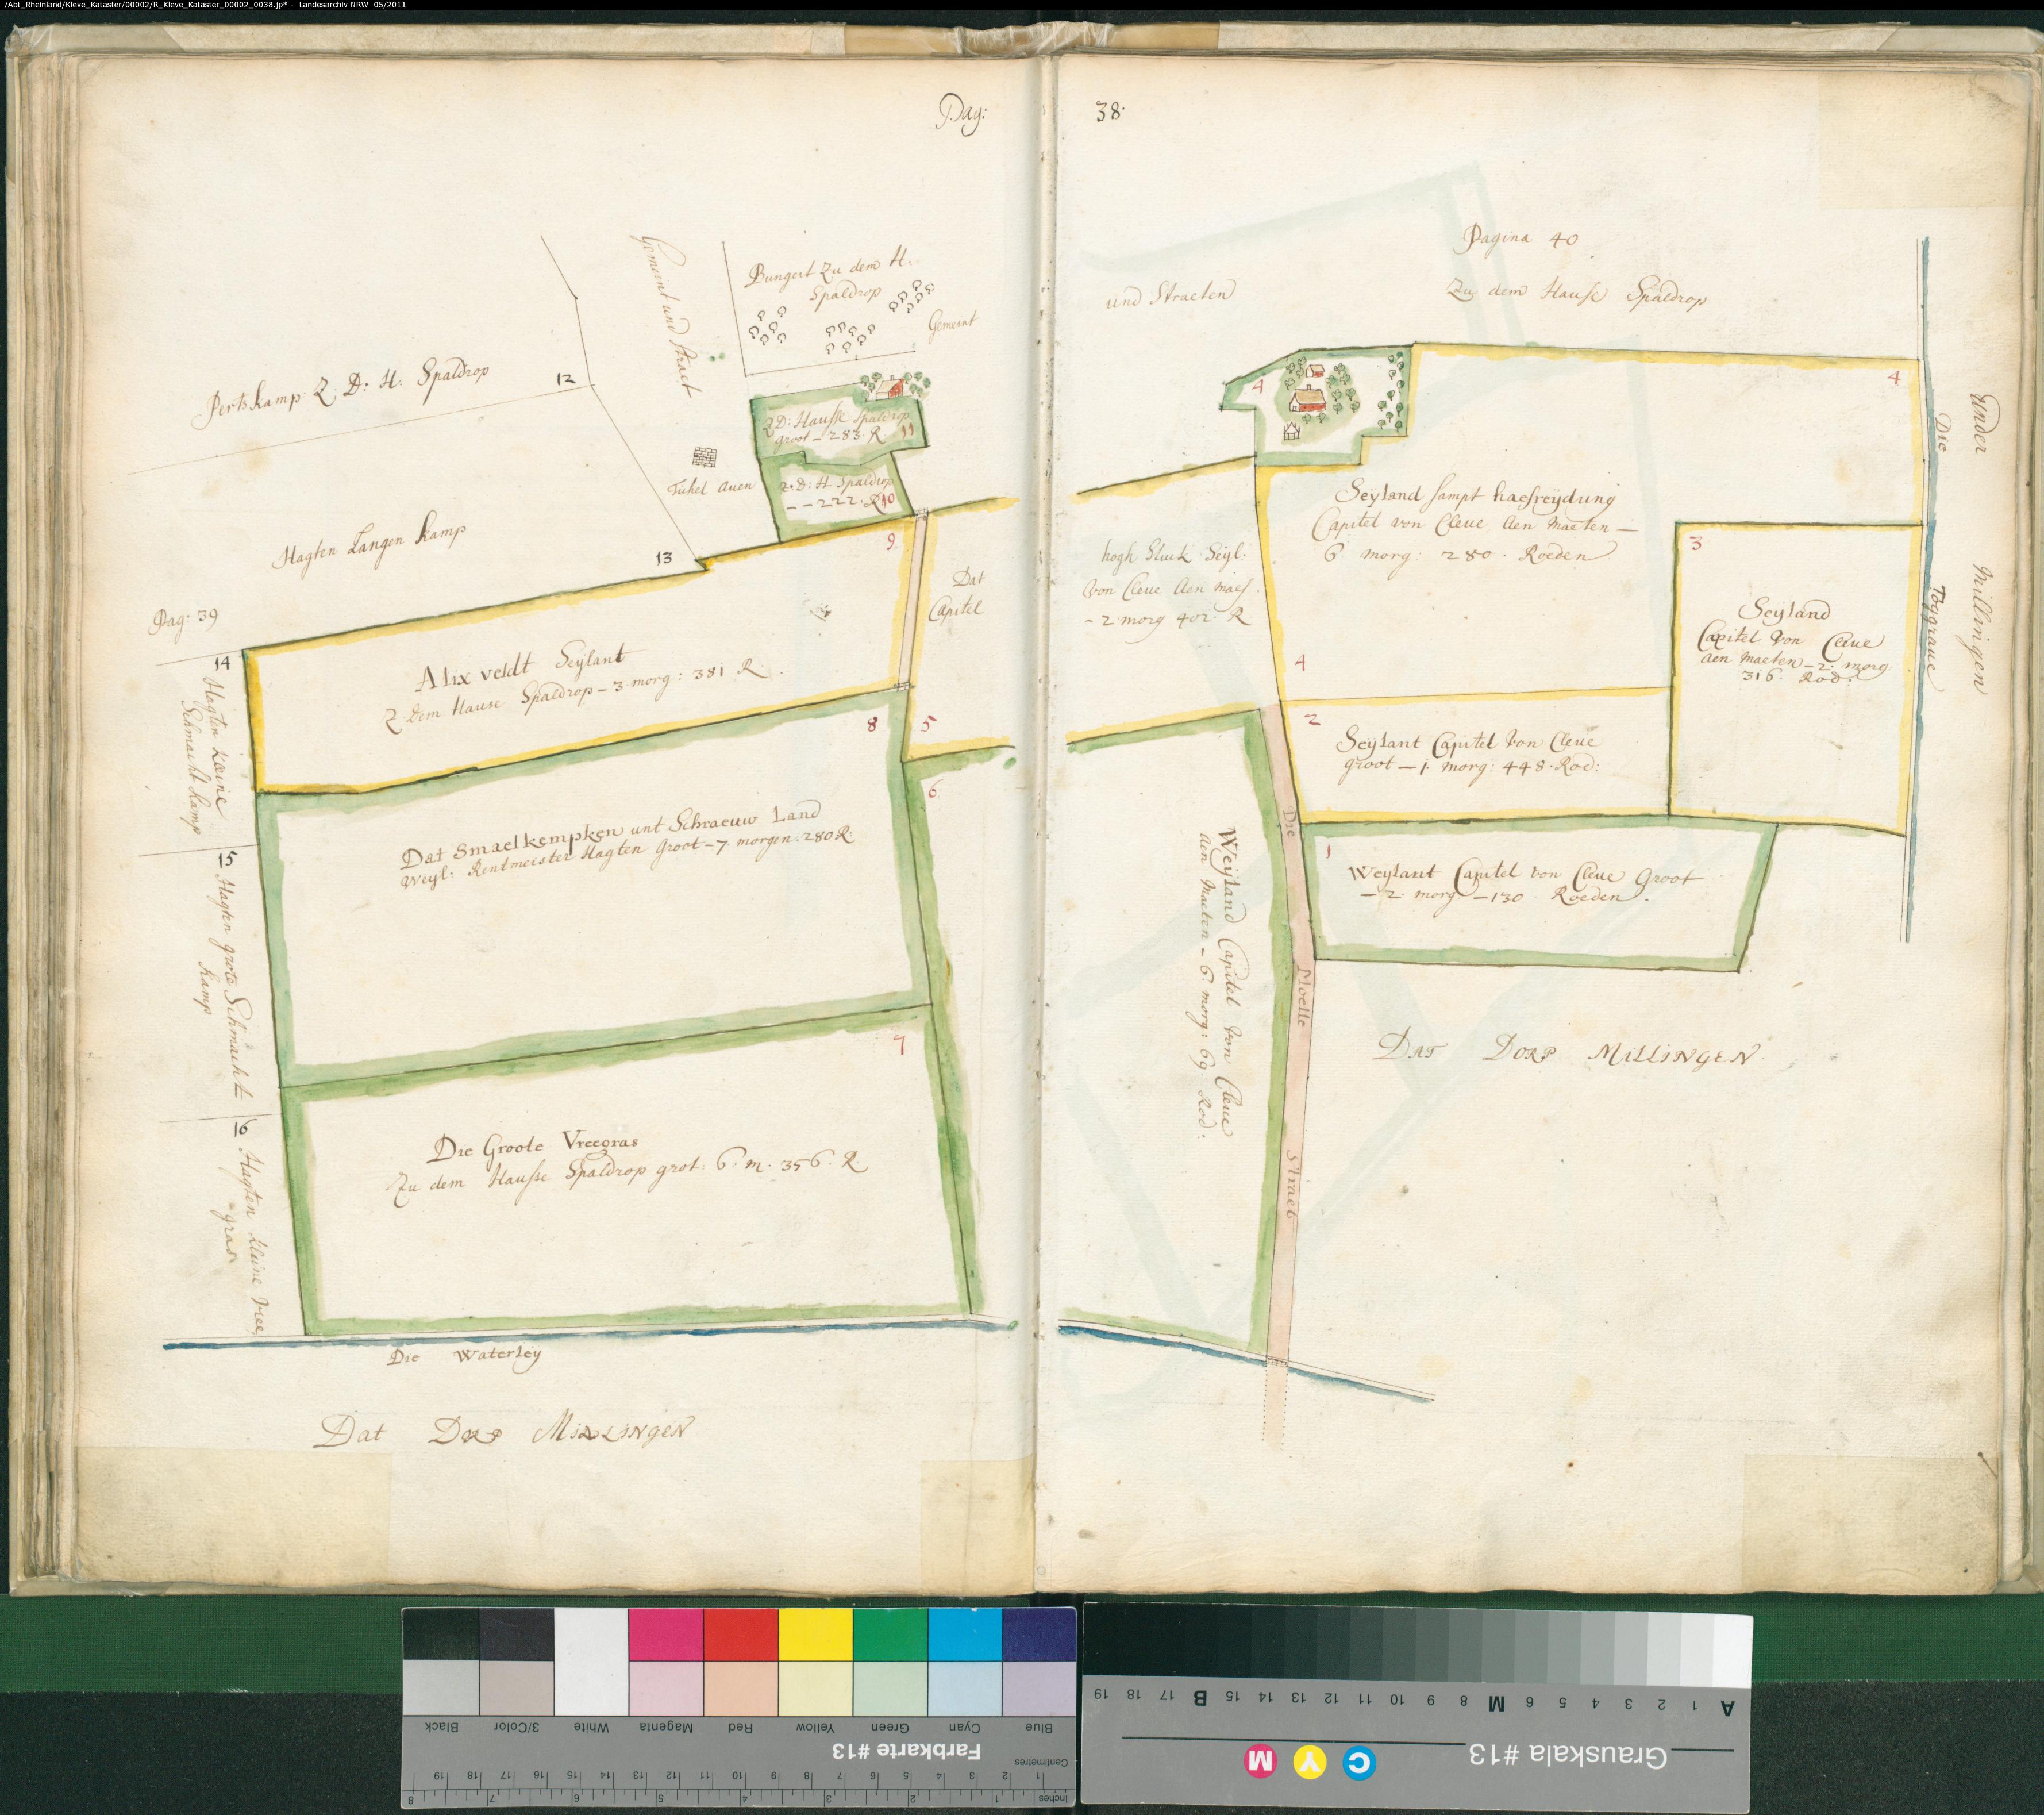 /Abt_Rheinland/Kleve_Kataster/00002/R_Kleve_Kataster_00002_0038.jp* - Landesarchiv NRW 05/2011
Pag:
38.
Gemeint und straet
Bungert Zu dem H.
Spaldrop
Gemeint
Pertskamp Z. D: H. Spaldrop
12
Z D: Hausse Spaldrop
groot – 283. R
11
Tichel auen
Z. D: H Spaldrop
– – 222. R
10
Hagten Langen Kamp
13
9
Pag: 39
14
Alix veldt Seylant
Z. Dem Hause Spaldrop – 3. morg: 381 R.
Dat
Capitel
5
Hagten kleine
Schmacht kamp
8
6
Dat Smaelkempken unt Schraeuw Land
Weyl: Rentmeister Hagten Groot – 7 morgen. 280 R.
15
Hagten grote Schmacht
Kamp
7
Die Groote Vreegras
Zu dem Hausse Spaldrop grot: 6. m. 356. R
16
Hagten kleine vree
gras
Die Waterley
Dat Dorp Millingen
und Straeten
Pagina 40
Zu dem Hause Spaldrop
4
4
Under Millingen
Die Toggraue
Seyland sampt haesreydung
Capitel von Cleue Aen Maeten –
6 morg: 280. Roeden
hogh Stuck Seyl.
von Cleue Aen maes.
- 2 morg 402. R
3
Seyland
Capitel von Cleue
aen maeten – 2. morg
316. Rod:
4
2
Seylant Capitel von Cleue
groot – 1. morg: 448. Rod:
1
Weylant Capitel von Cleue Groot
– 2. morg – 130. Roeden.
Weyland Capitel von Cleue
aen Maeten – 6. morg: 69. Rod:
Die Moelle Straet
Dat Dorp Millingen
Blue
Cyan
Green
Yellow
Red
Magenta
White
3/Color
Black
Farbkarte #13
Centimetres
1 2 3 4 5 6 7 8 9 10 11 12 13 14 15 16 17 18 19
Inches
1 2 3 4 5 6 7 8
A 1 2 3 4 5 6 M 8 9 10 11 12 13 14 15 B 17 18 19
Grauskala #13
C Y M